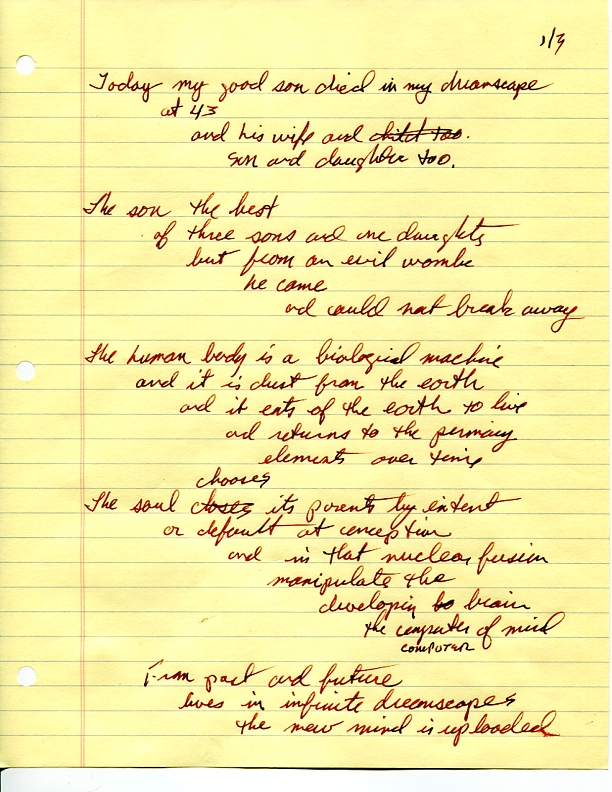 1/3
Today my good son died in my dreamscape
at 43
and his wife and child too.
son and daughter too.
The son the best
of three sons and one daughts
but from an evil wombe
he came
and could not break away
The human body is a biological machine
and it is dust from the earth
and it eats of the earth to live
and returns to the permiary
elements over time
chooses
The soul closes its parents by entent
or default at conception
and in that nuclear fusion
manipulate the
developing bo brain
the computer of mind
COMPUTER
From past and future
lives in infinite dreamscapes
the new mind is uploaded